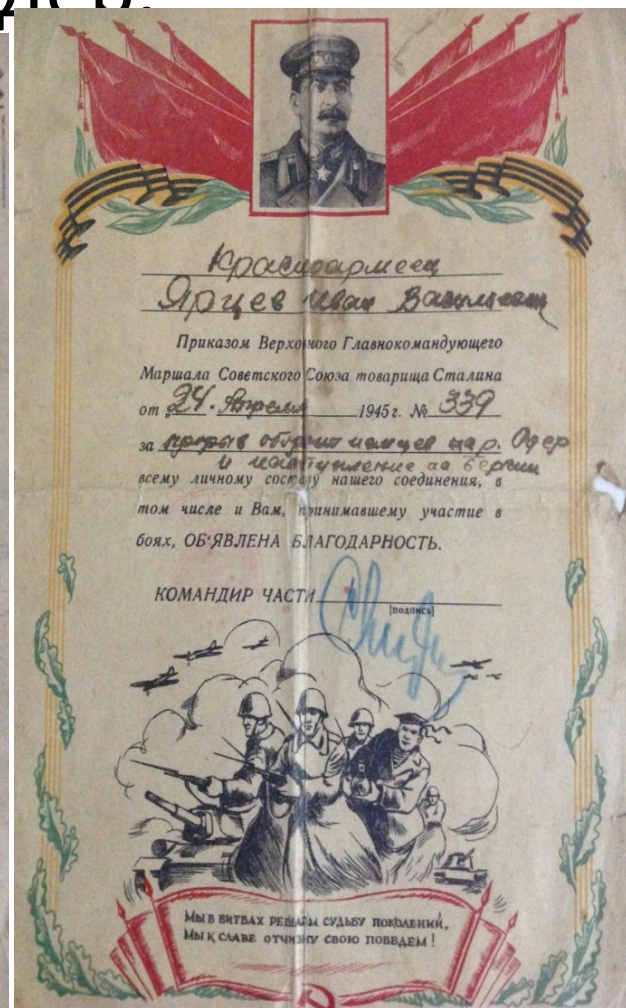 Красноармеец
Ярцев Иван Васильевич
Приказом Верховного Главнокомандующего
Маршала Советского Союза товарища Сталина
от 24. Апреля 1945 г. № 339
за прорыв обороны немцев на р. Одер
и наступление на Берлин
всему личному составу нашего соединения, в
том числе и Вам, принимавшему участие в
боях, ОБ'ЯВЛЕНА БЛАГОДАРНОСТЬ.
КОМАНДИР ЧАСТИ
[подпись]
МЫ В БИТВАХ РЕШАЕМ СУДЬБУ ПОКОЛЕНИЙ,
МЫ К СЛАВЕ ОТЧИЗНУ СВОЮ ПОВЕДЕМ!